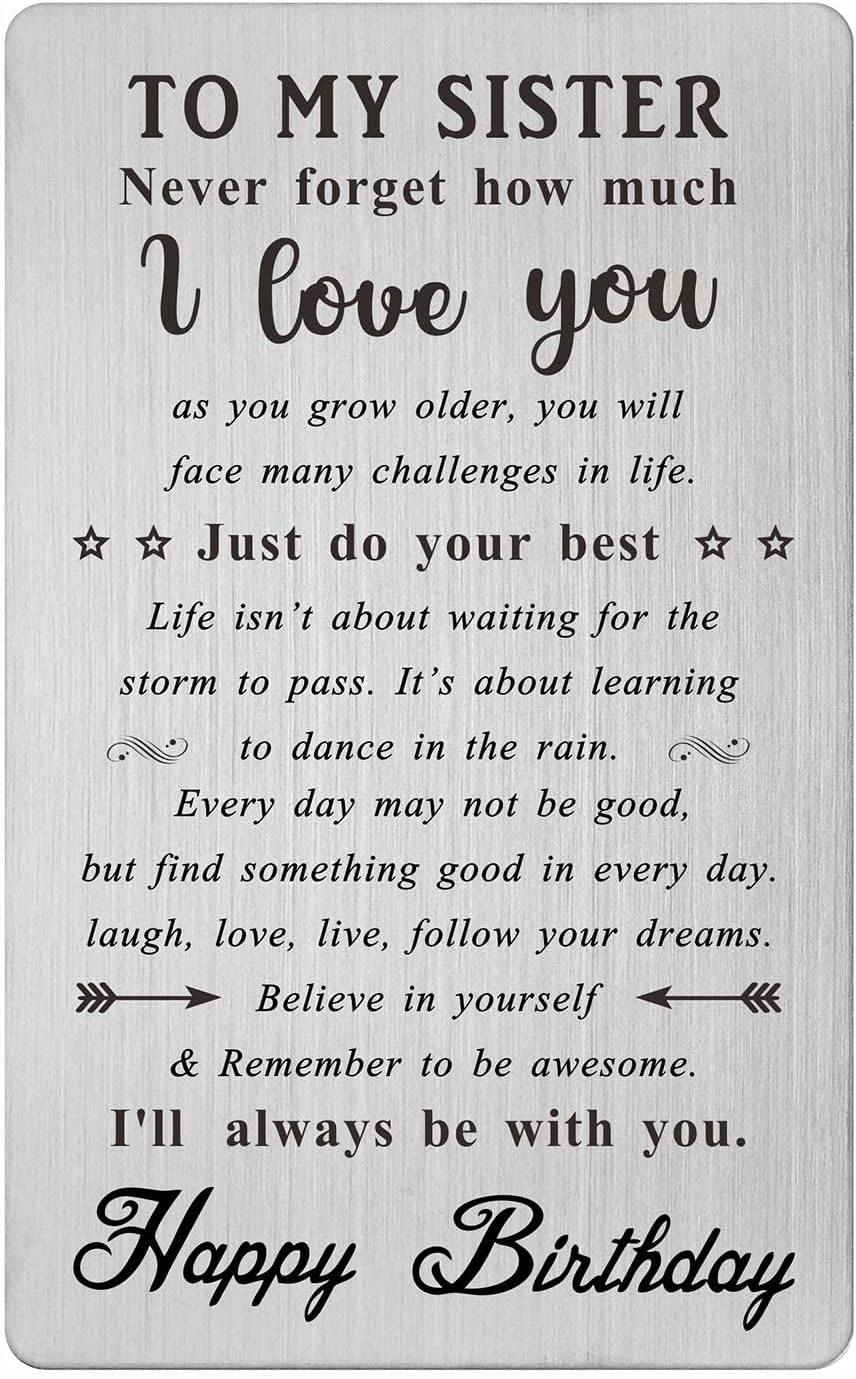 TO MY SISTER
Never forget how much
I love you
as you grow older, you will
face many challenges in life.
Just do your best
Life isn’t about waiting for the
storm to pass. It’s about learning
to dance in the rain.
Every day may not be good,
but find something good in every day.
laugh, love, live, follow your dreams.
Believe in yourself
& Remember to be awesome.
I'll always be with you.
Happy Birthday